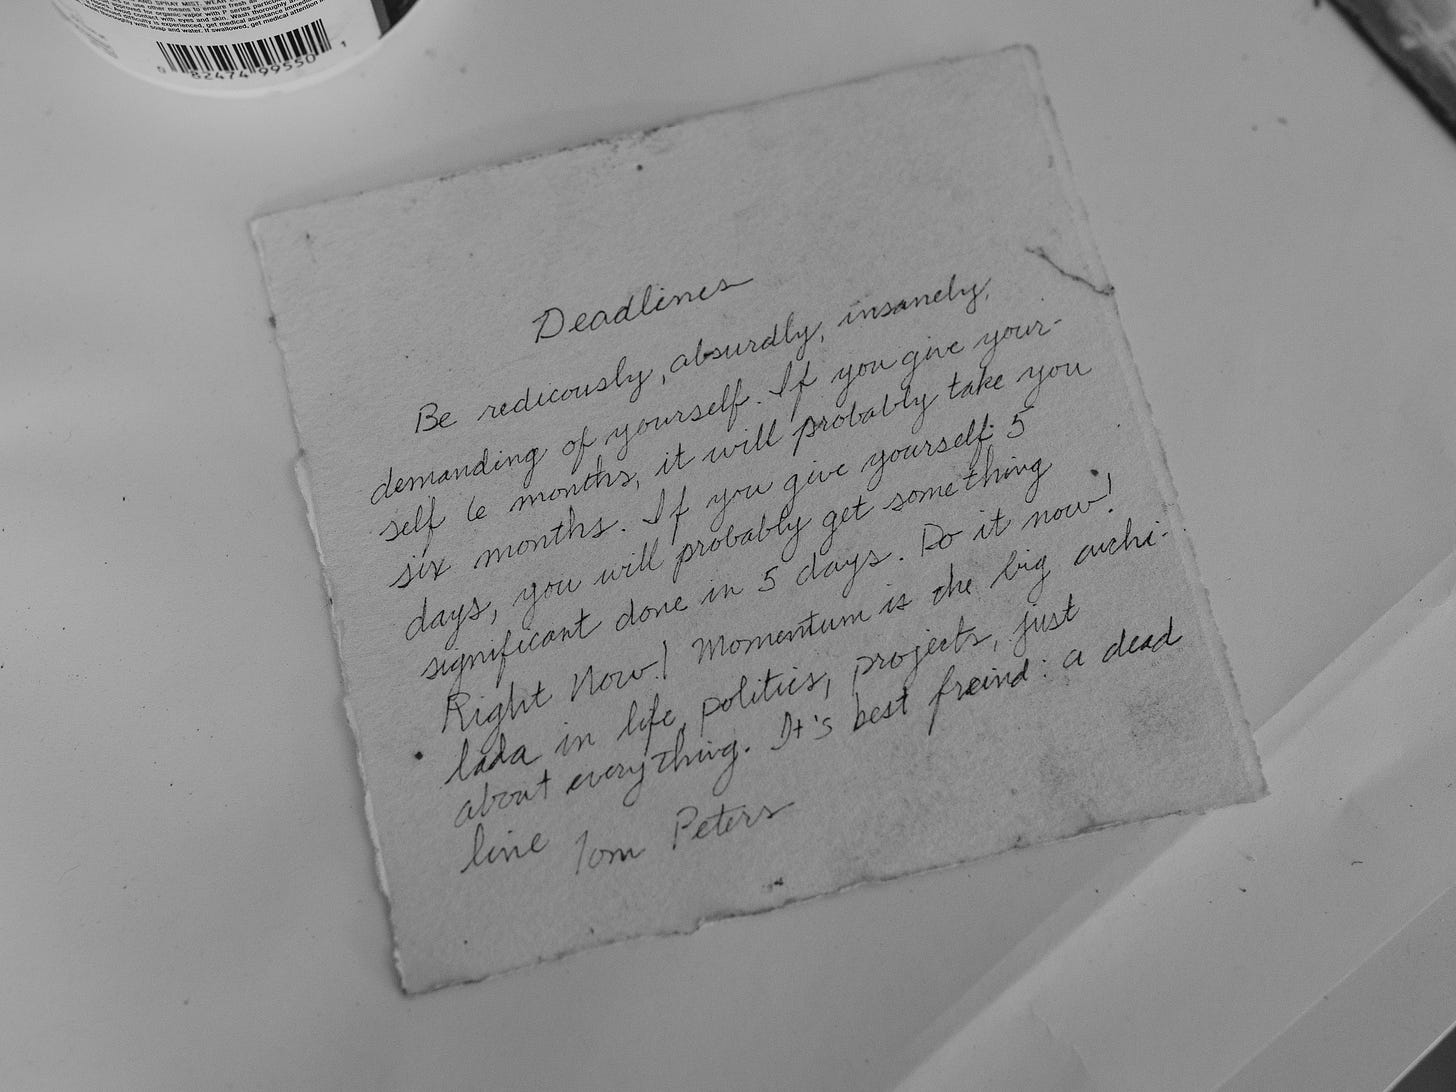 AND SPRAY MIST. WEAR
use other means to ensure fresh a
for organic vapor with P series particu
contact with eyes and skin. Wash thoroughly a
difficulty is experienced, get medical assistance immedi
soap and water. If swallowed, get medical attention i
0 82474 99550 1
Deadlines
Be rediculously, absurdly, insanely,
demanding of yourself. If you give your-
self 6 months, it will probably take you
six months. If you give yourself 5
days, you will probably get something
significant done in 5 days. Do it now!
Right Now! Momentum is the big enchi-
lada in life, politics, projects, just
about everything. It's best freind: a dead
line Tom Peters